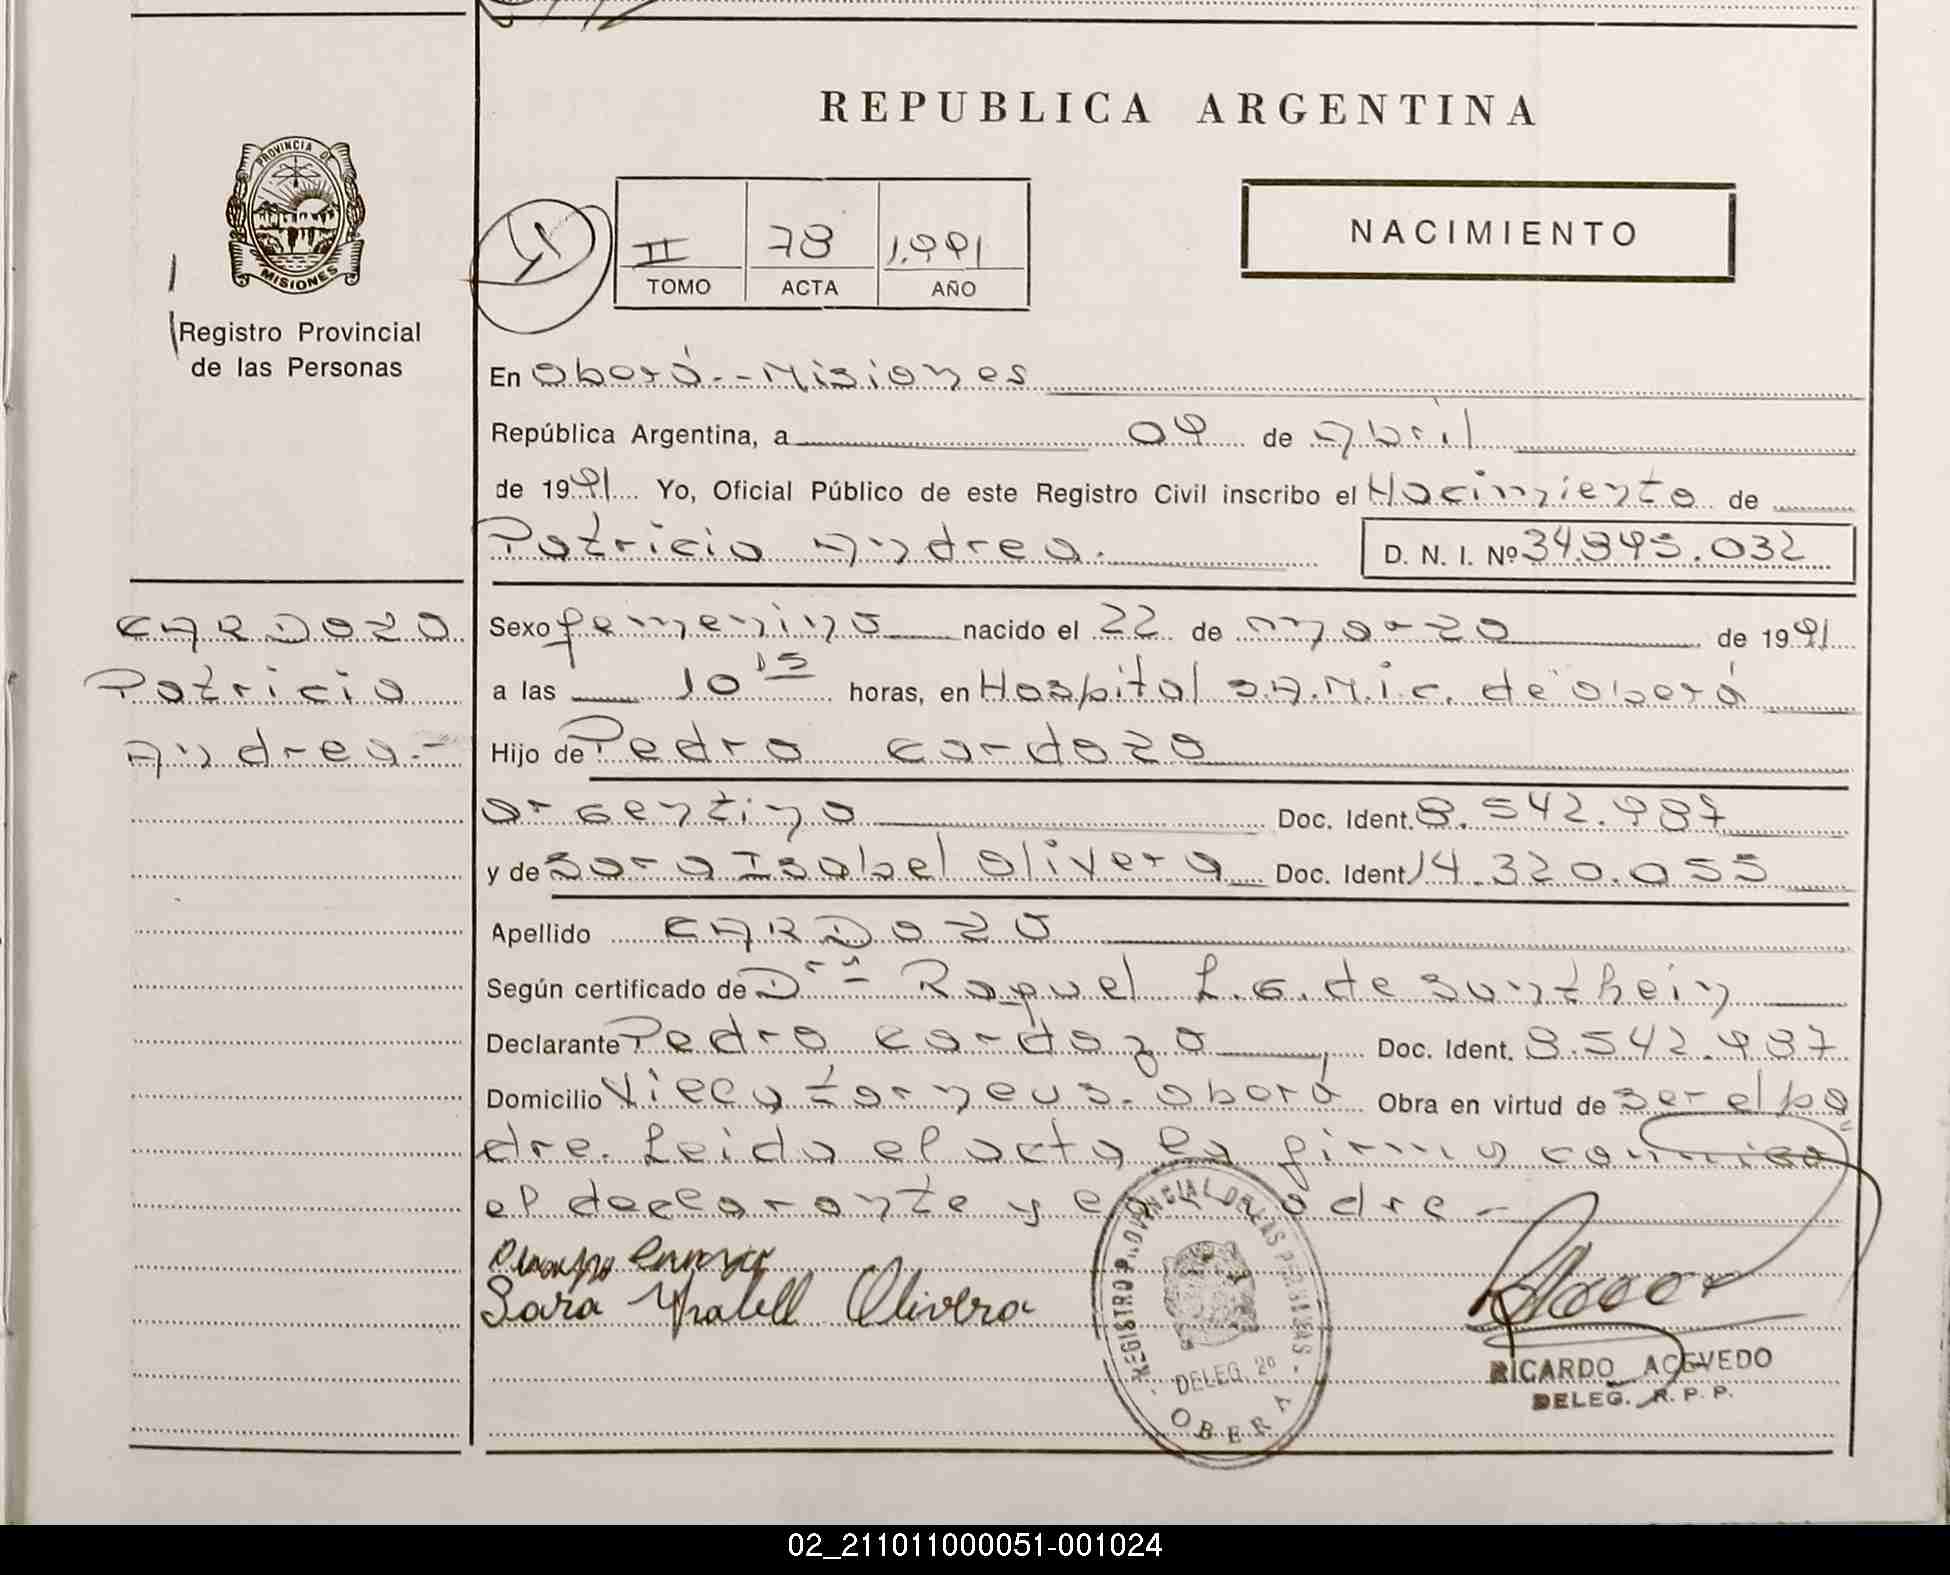 REPUBLICA ARGENTINA
PROVINCIA DE
MISIONES
Registro Provincial
de las Personas
II 78 1.991
TOMO ACTA AÑO
NACIMIENTO
En Oberá -- Misiones
República Argentina, a 04 de Abril
de 1991 Yo, Oficial Público de este Registro Civil inscribo el Nacimiento de
Patricia Andrea.
D. N. I. Nº 34.895.032
CARDOZO
Patricia
Andrea.-
Sexo femenino nacido el 22 de marzo de 1991
a las 10 15 horas, en Hospital S.A.M.i.c. de Oberá
Hijo de Pedro Cardozo
argentina Doc. Ident. 8.542.987
y de Sara Isabel Olivera Doc. Ident. 14.320.055
Apellido CARDOZO
Según certificado de Drs Raquel L. G. de Sunthein
Declarante Pedro Cardozo Doc. Ident. 8.542.987
Domicilio Oberá Obra en virtud de ser el pa
dre. Leida el acta la firma conmigo
el declarante y la madre -
Sara Ysabell Olivera
REGISTRO PROVINCIAL DE LAS PERSONAS
DELEG. 2º
OBERA
RICARDO ACEVEDO
DELEG. R. P. P.
02_211011000051-001024